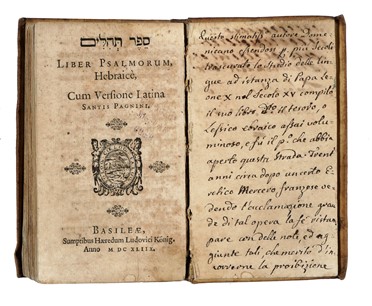 ספר תהלים
LIBER PSALMORUM,
Hebraicè,
Cum Versione Latina
SANTIS PAGNINI.
BASILEÆ,
Sumptibus Hæredum Ludovici König.
Anno M DC XLIII.
Questo stimatiss autore Domenicano
essendo più secoli
trascurato lo studio delle lingue
ad istanza di Papa Leone
X nel secolo XV compilò
il suo libro il tesoro, o
Lessico ebraico assai voluminoso,
e fu il p.º che abbia
aperto questa strada. Trent
anni circa dopo un certo
Mercero, franzese
vedendo l'acclamazione grande
di tal opera la fè ristampare
con delle note, ed aggiunte
tali, che meritò d'incorrerne
la proibizione